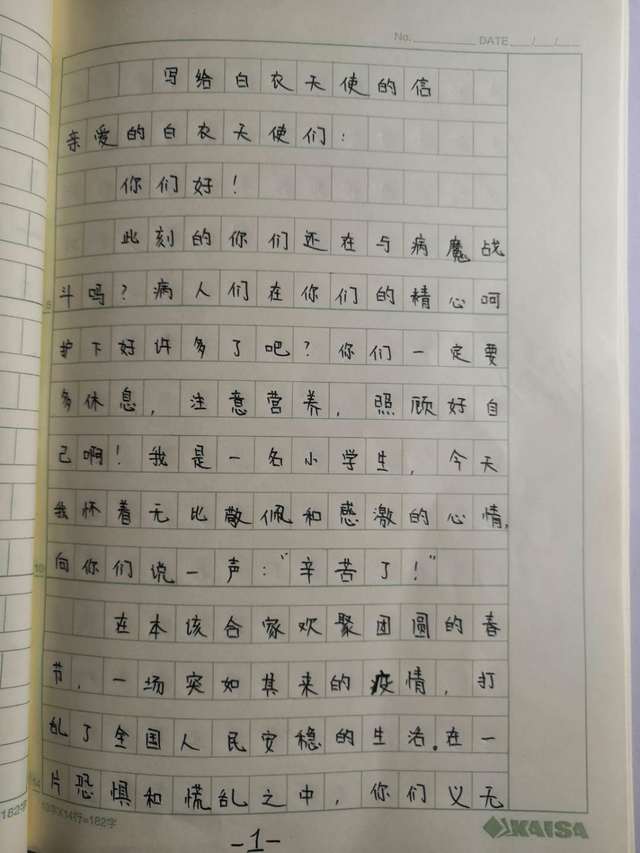 No. DATE / /
写给白衣天使的信
亲爱的白衣天使们:
你们好!
此刻的你们还在与病魔战
斗吗?病人们在你们的精心呵
护下好许多了吧?你们一定要
多休息,注意营养,照顾好自
己啊!我是一名小学生,今天
我怀着无比敬佩和感激的心情,
向你们说一声:"辛苦了!"
在本该合家欢聚团圆的春
节,一场突如其来的疫情,打
乱了全国人民安稳的生活。在一
片恐惧和慌乱之中,你们义无
182字
13字X14行=182字
KAISA
-1-